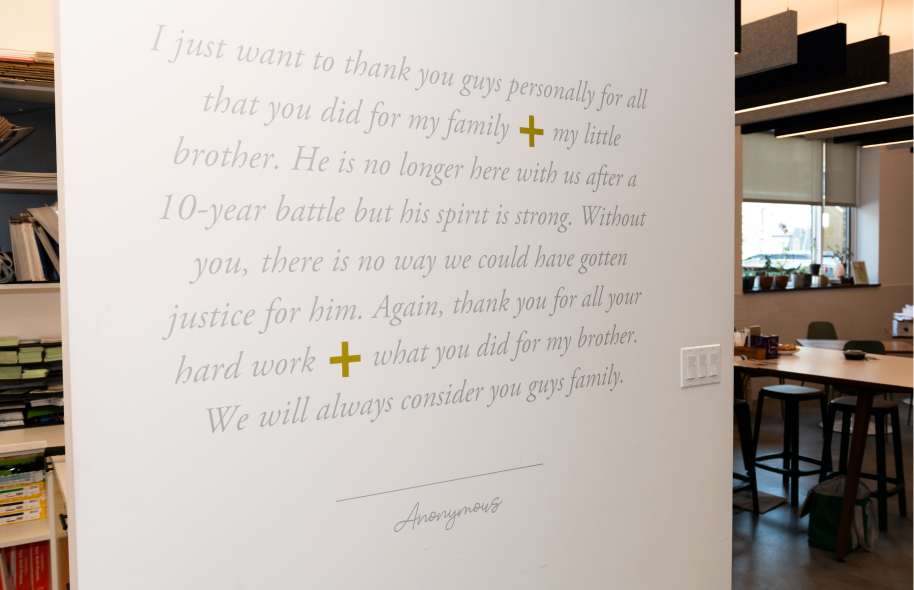 I just want to thank you guys personally for all
that you did for my family + my little
brother. He is no longer here with us after a
10-year battle but his spirit is strong. Without
you, there is no way we could have gotten
justice for him. Again, thank you for all your
hard work + what you did for my brother.
We will always consider you guys family.
Anonymous